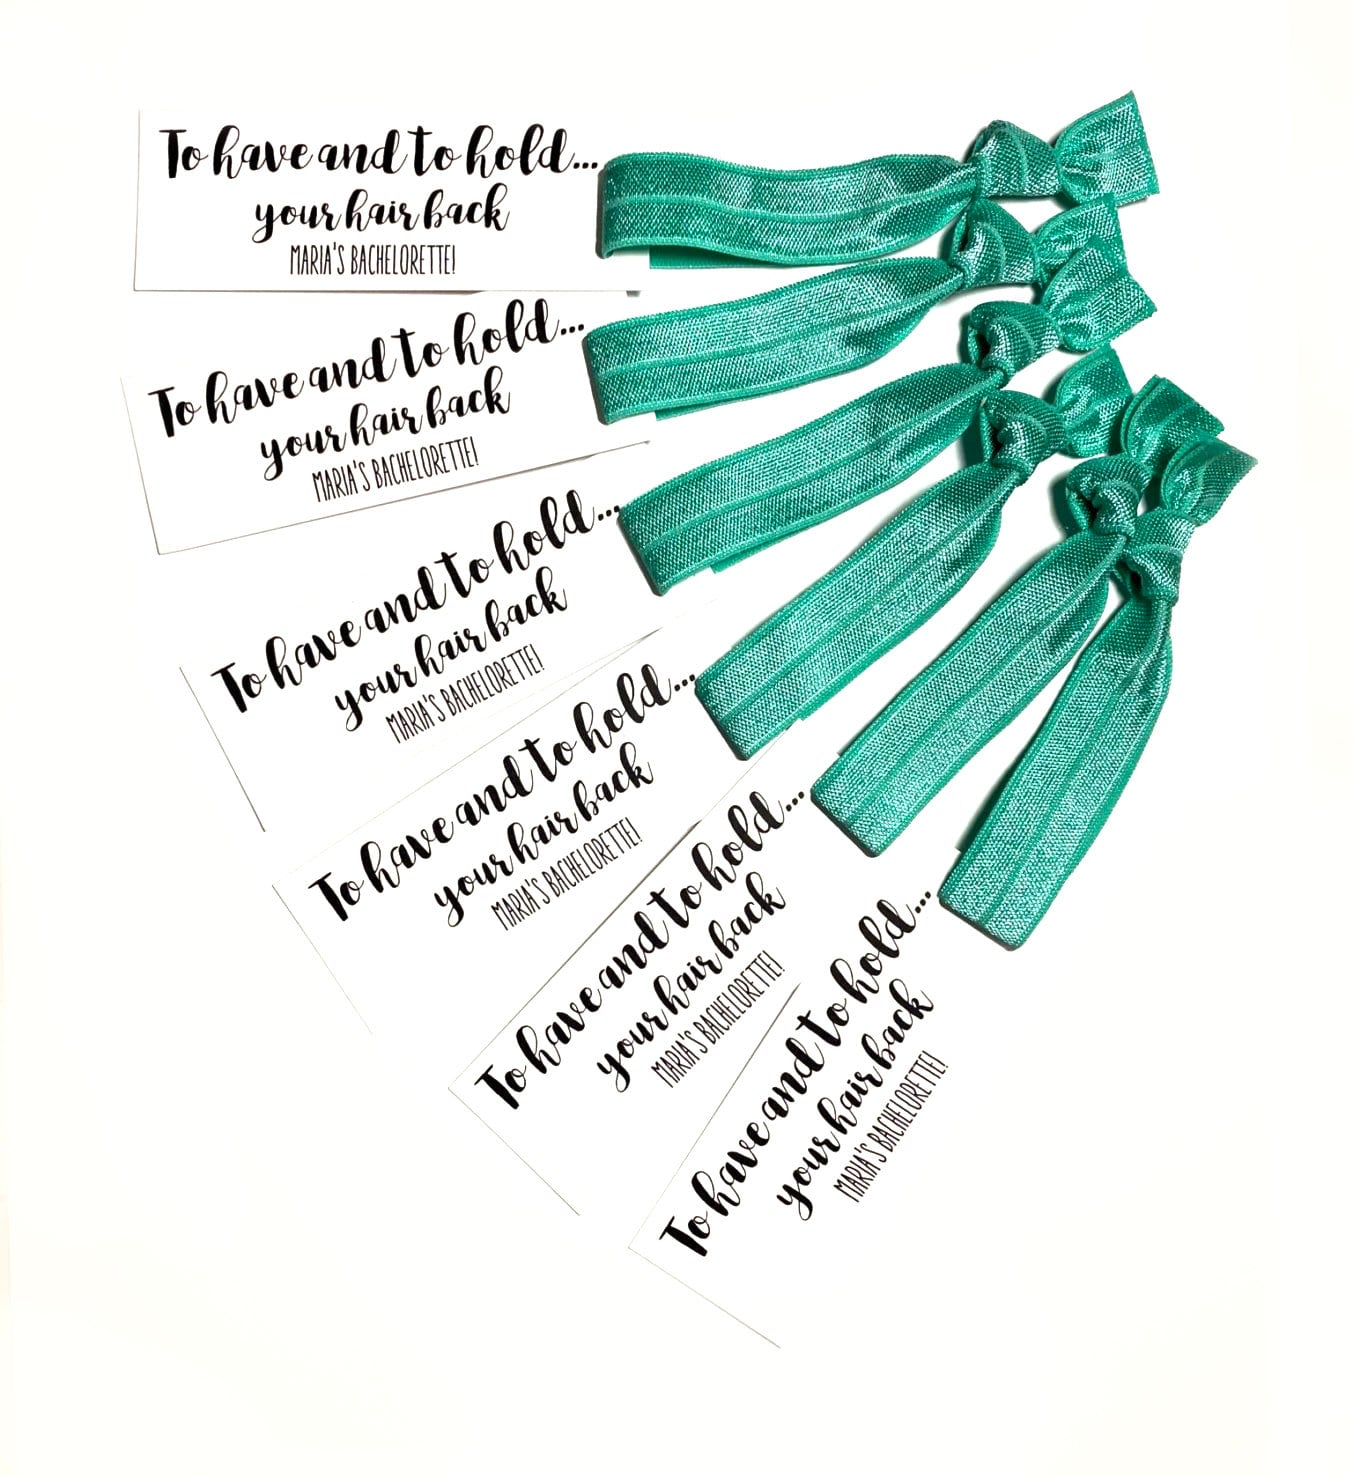 To have and to hold...
your hair back
MARIA'S BACHELORETTE!
To have and to hold...
your hair back
MARIA'S BACHELORETTE!
To have and to hold...
your hair back
MARIA'S BACHELORETTE!
To have and to hold...
your hair back
MARIA'S BACHELORETTE!
To have and to hold...
your hair back
MARIA'S BACHELORETTE!
To have and to hold...
your hair back
MARIA'S BACHELORETTE!